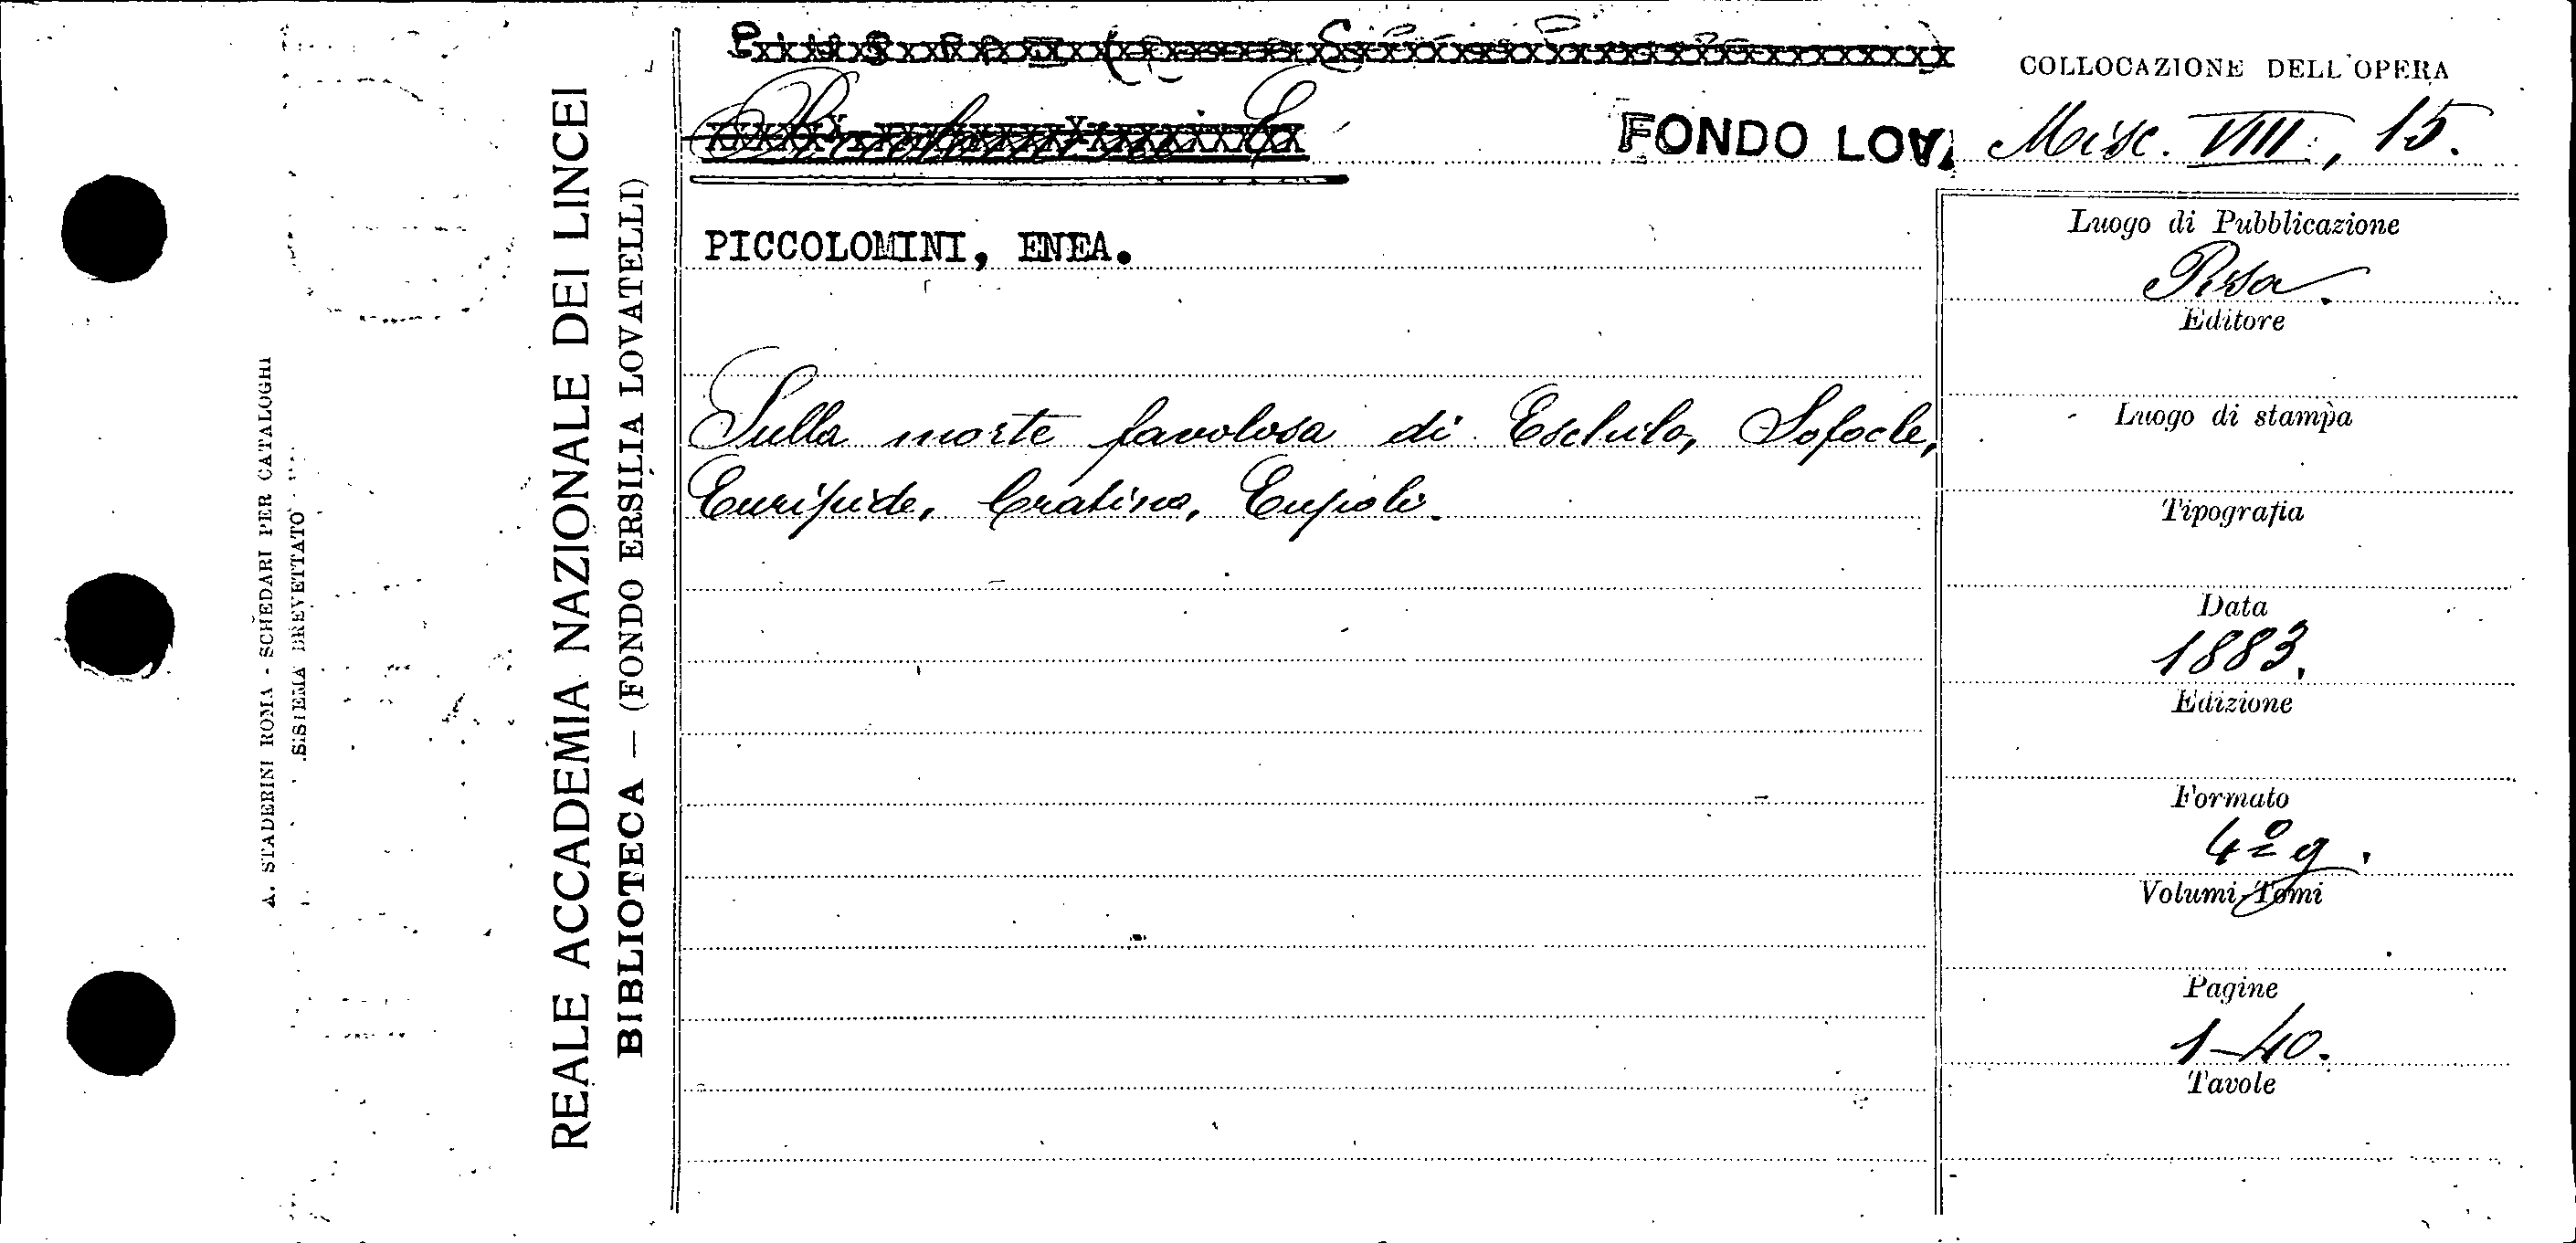 COLLOCAZIONE DELL'OPERA
FONDO LOVA. Misc. VIII, 15.
PICCOLOMINI, ENEA.
Sulla morte favolosa di Eschilo, Sofocle,
Euripide, Cratino, Eupoli.
Luogo di Pubblicazione
Pisa.
Editore
Luogo di stampa
Tipografia
Data
1883.
Edizione
Formato
4º g.
Volumi-Tomi
Pagine
1-40.
Tavole
REALE ACCADEMIA NAZIONALE DEI LINCEI
BIBLIOTECA — (FONDO ERSILIA LOVATELLI)
A. STADERINI ROMA - SCHEDARI PER CATALOGHI
SISTEMA BREVETTATO